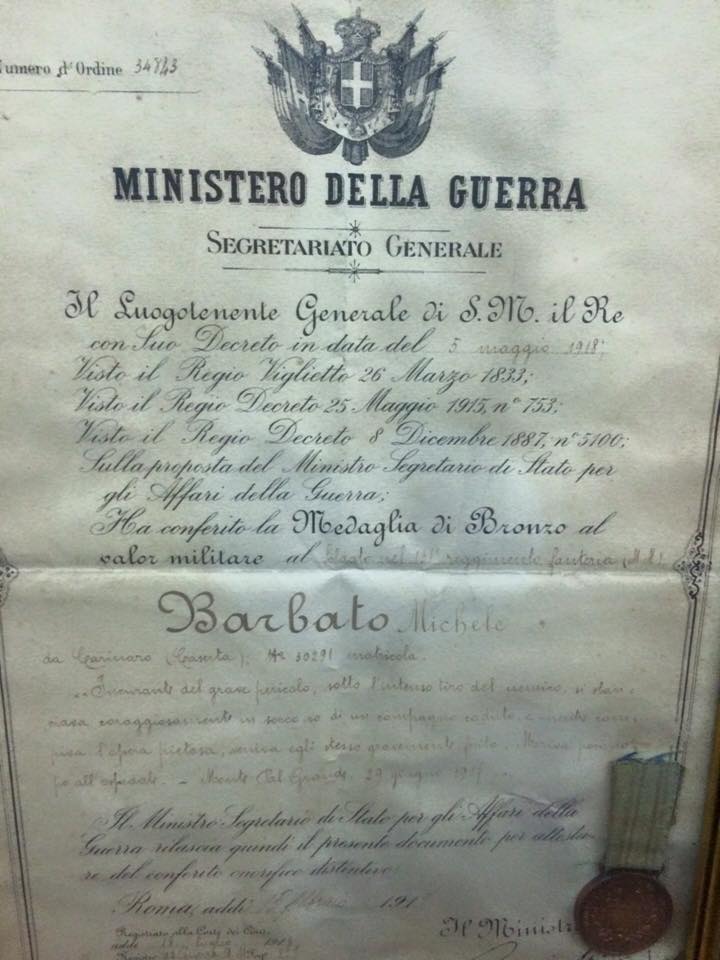 Numero d'Ordine 34843
MINISTERO DELLA GUERRA
SEGRETARIATO GENERALE
Il Luogotenente Generale di S. M. il Re
con Suo Decreto in data del 5 maggio 1918;
Visto il Regio Viglietto 26 Marzo 1833;
Visto il Regio Decreto 25 Maggio 1915, n° 753;
Visto il Regio Decreto 8 Dicembre 1887, n° 5100;
Sulla proposta del Ministro Segretario di Stato per
gli Affari della Guerra;
Ha conferito la Medaglia di Bronzo al
valor militare al soldato nel reggimento fanteria (M.M.)
Barbato Michele
da Carinaro (Caserta); N° 30291 matricola.
"Incurante del grave pericolo, sotto l'intenso tiro del nemico, si slan-
ciava coraggiosamente in soccorso di un compagno caduto, e mentre com-
piva l'opera pietosa, veniva egli stesso gravemente ferito. Moriva poi
all'ospedale. - Monte Val Grande, 29 giugno
Il Ministro Segretario di Stato per gli Affari della
Guerra rilascia quindi il presente documento per attesta-
re del conferito onorifico distintivo
Roma, addì 191
Registrato alla Corte dei Conti
addì luglio
Il Ministr